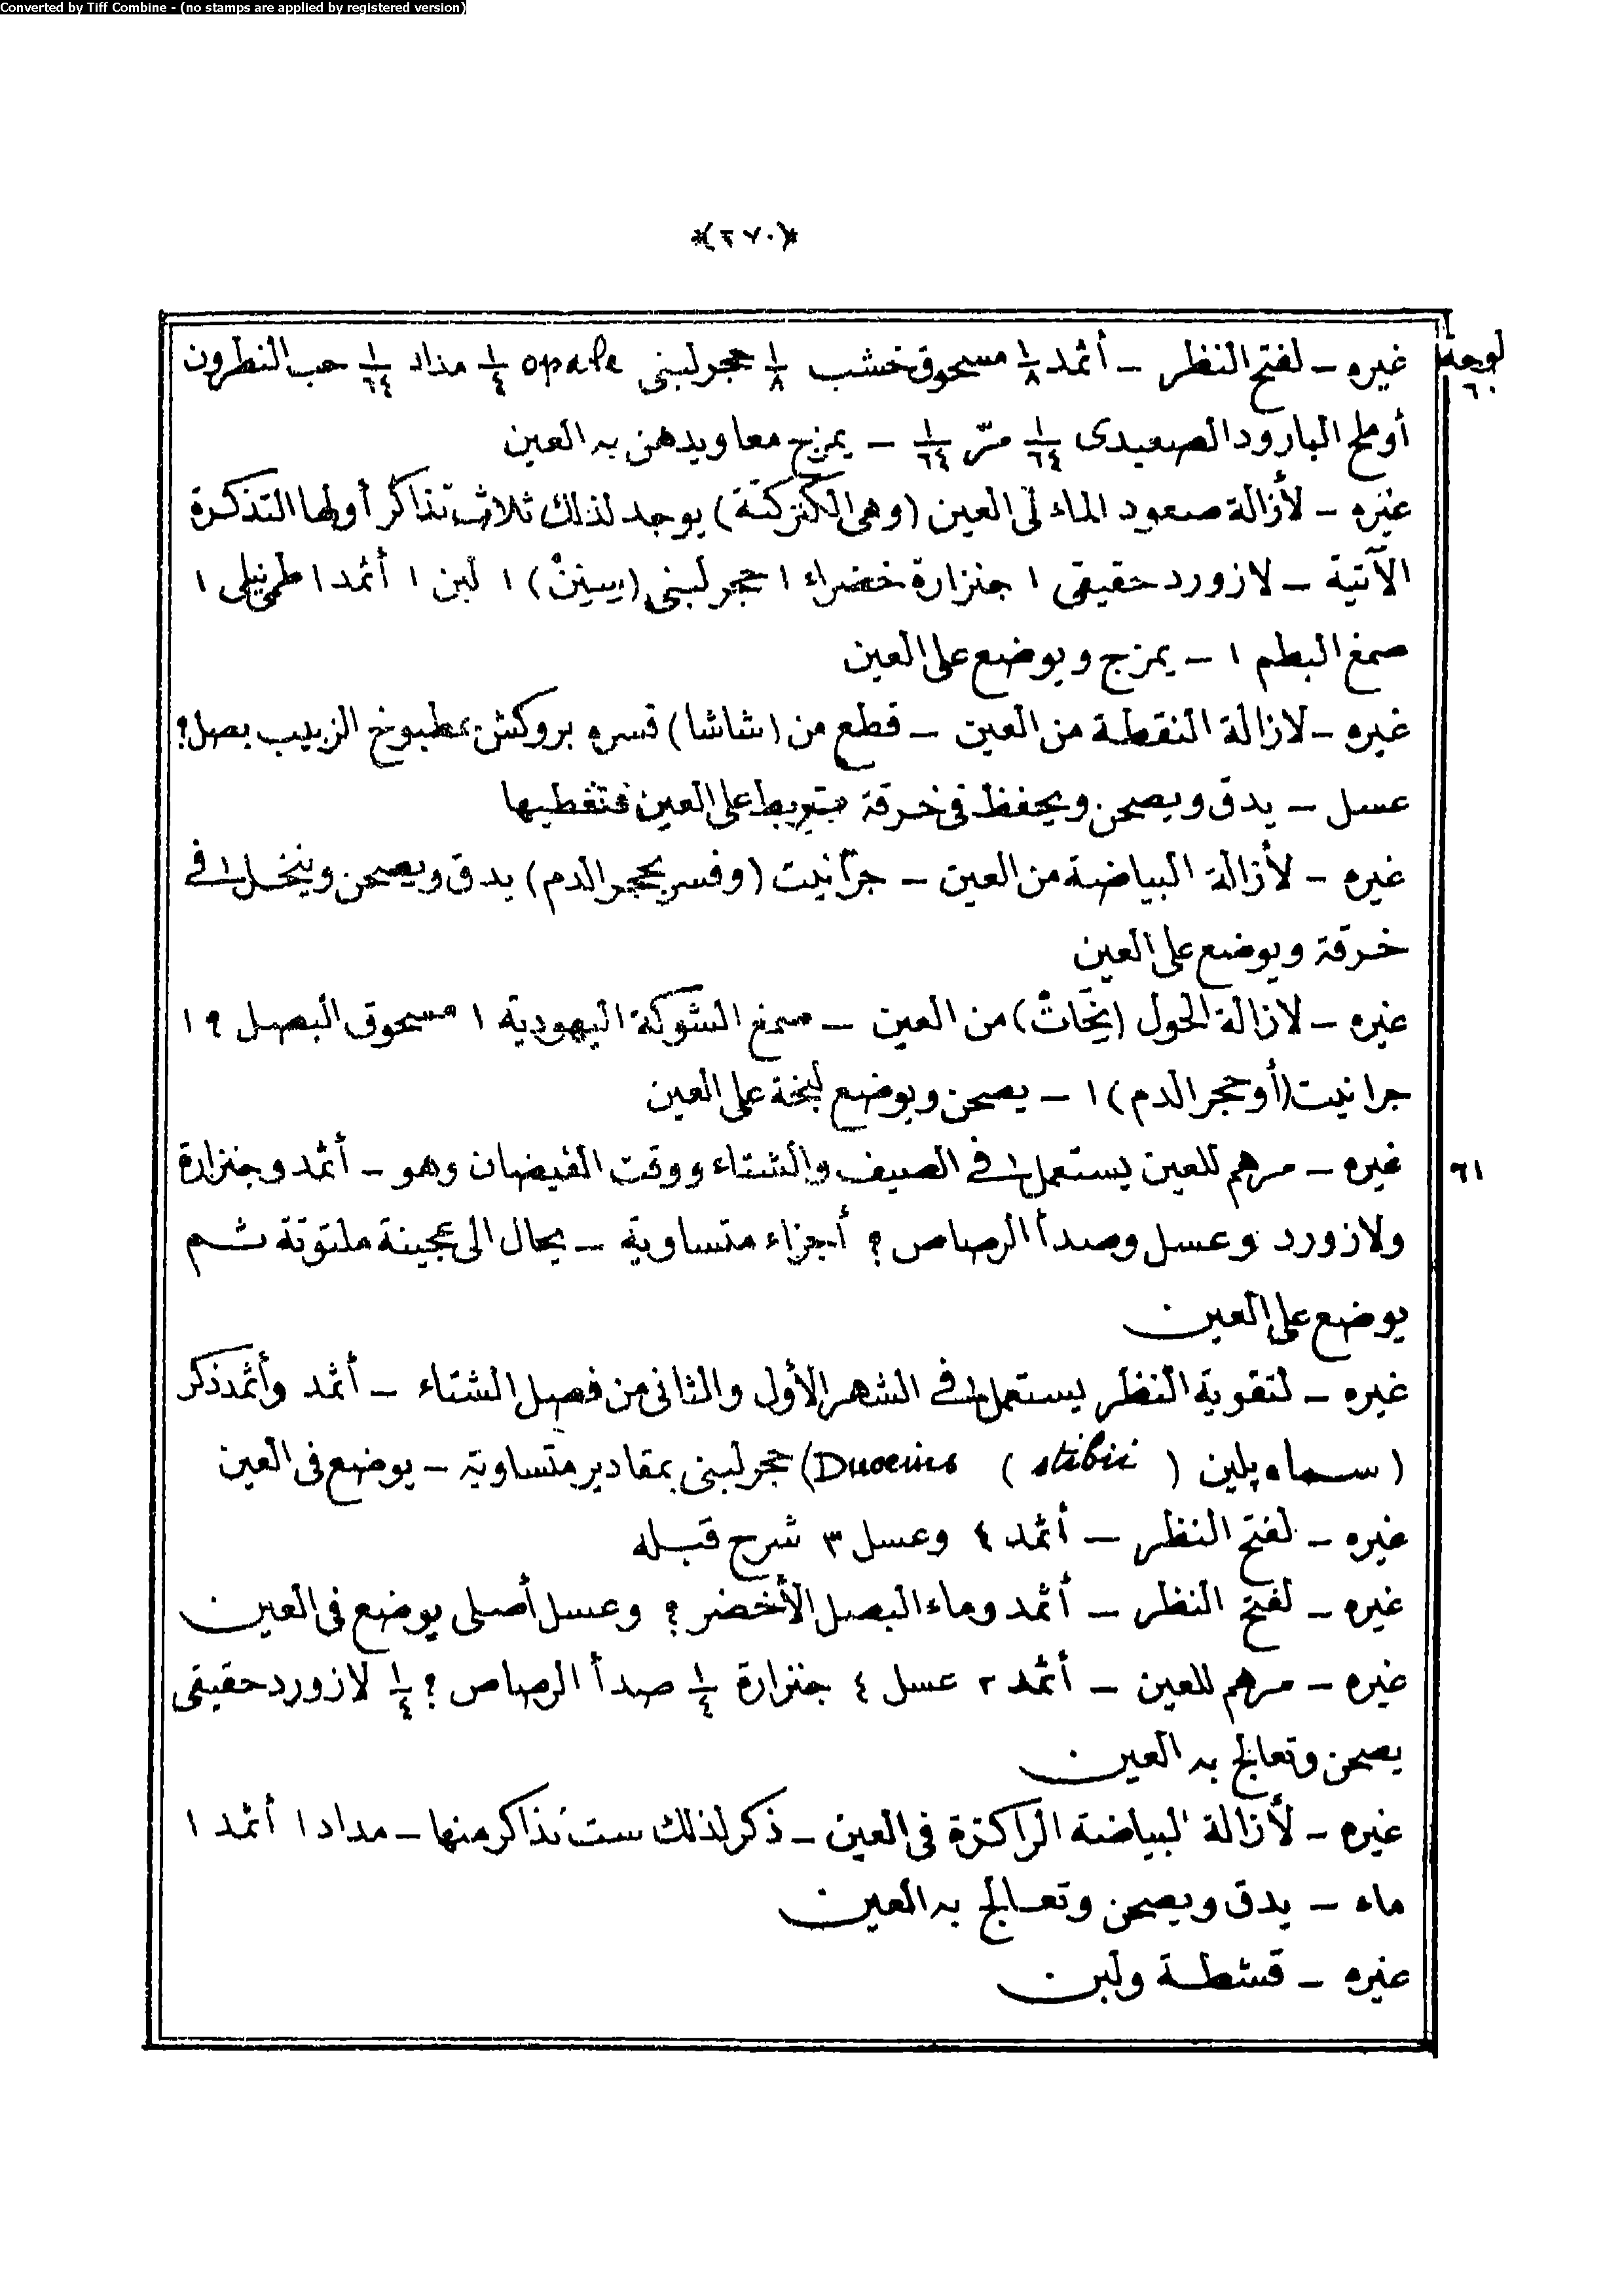 Converted by Tiff Combine - (no stamps are applied by registered version)
*(٢٧٠)*
لوحة ٦٠
غيره – لفتح النظر – أثمد ١/٨ مسحوق خشب ١/٨ حجر لبنى opale ١/٤ مداد ١/٦٤ حب النطرون
أو ملح البارود الصعيدى ١/٦٤ مرّ ١/٦٤ – يمزج معا ويدهن به العين
غيره – لأزالة صعود الماء فى العين (وهى الكتركتة) يوجد لذلك ثلاث تذاكر أولها التذكرة
الآتية – لازورد حقيقى ١ جنزارة خضراء ١ حجر لبنى (بيسين) ١ لبن ١ أثمد ١ طمى نيلى ١
صمغ البطم ١ – يمزج ويوضع على العين
غيره – لازالة النقطة من العين – قطع من (شاشا) فسره بروكش بمطبوخ الزبيب بصل؟
عسل – يدق ويصحن ويحفظ فى خرقة تربط على العين فتغطيها
غيره – لأزالة البياضة من العين – جرانيت (وفسر بحجر الدم) يدق ويصحن وينخل فى
خرقة ويوضع على العين
غيره – لازالة الحول من العين – صمغ الشوكة اليهودية ١ مسحوق البصل ؟ ١
جرانيت (أو حجر الدم) ١ – يصحن ويوضع لبخة على العين
٦١
غيره – مرهم للعين يستعمل فى الصيف والشتاء ووقت الفيضان وهو – أثمد وجنزارة
ولازورد وعسل وصدأ الرصاص ؟ أجزاء متساوية – يحال الى عجينة ملتوتة ثم
يوضع على العين
غيره – لتقوية النظر يستعمل فى الشهر الأول والثانى من فصل الشتاء – أثمد وأثمد ذكر
(سماه پلين (stibii) حجر لبنى بمقادير متساوية – يوضع فى العين
غيره – لفتح النظر – أثمد ٤ وعسل ٣ شرح قبله
غيره – لفتح النظر – أثمد وماء البصل الأخضر ؟ وعسل أصلى يوضع فى العين
غيره – مرهم للعين – أثمد ٢ عسل ٤ جنزارة ١/٤ صدأ الرصاص ؟ ١/٤ لازورد حقيقى
يصحن وتعالج به العين
غيره – لأزالة البياضة الراكزة فى العين – ذكر لذلك ست تذاكر منها – مداد ١ أثمد ١
ماء – يدق ويصحن وتعالج به العين
غيره – قشطة ولبن